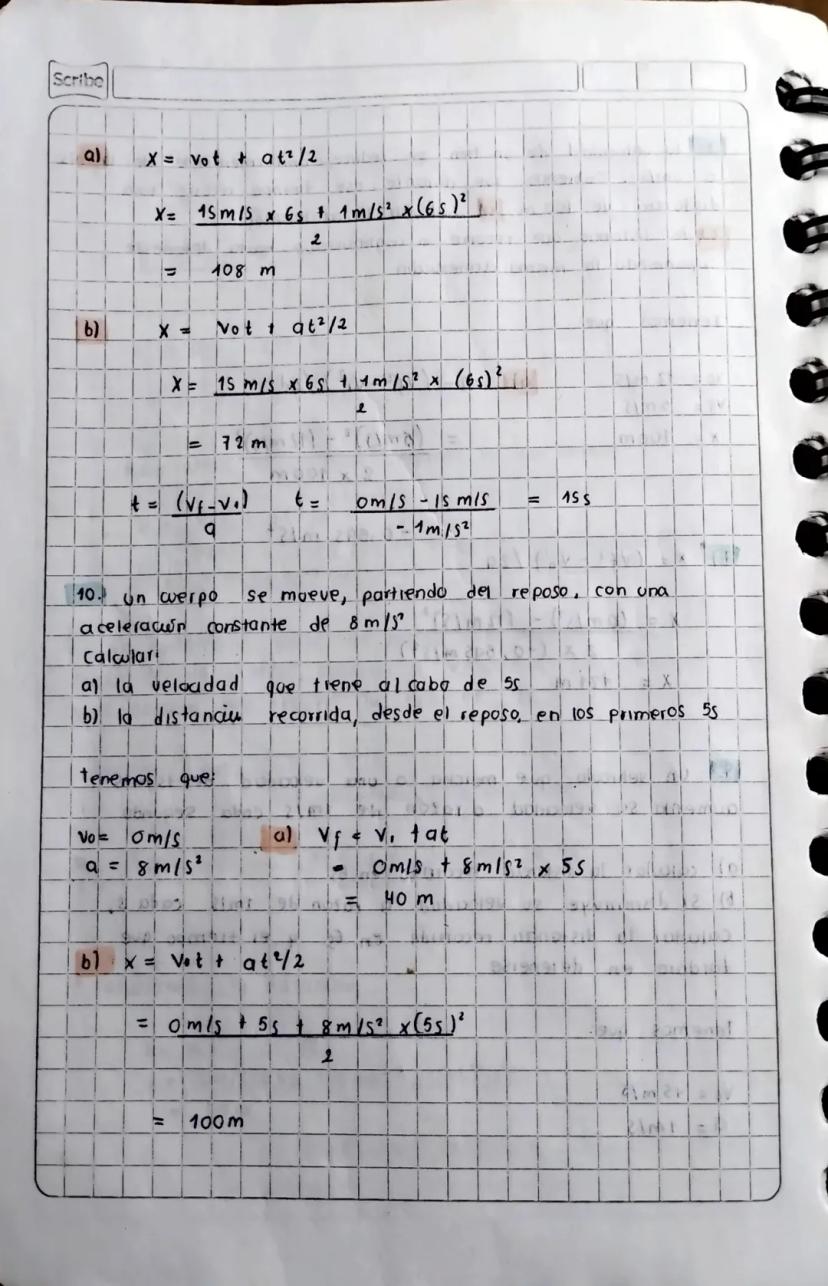 Scribe
a) x = vot + at²/2
x = 15m/s x 6s + 1m/s² x (6s)²
2
= 108 m
b) x = vot + at²/2
x = 15 m/s x 6s + 1m/s² x (6s)²
2
= 72 m
t = (Vf - Vo) t = 0m/s - 15 m/s = 15s
a - 1m/s²
10. un cuerpo se mueve, partiendo del reposo, con una
aceleración constante de 8 m/s²
calcular:
a) la velocidad que tiene al cabo de 5s
b) la distancia recorrida, desde el reposo, en los primeros 5s
tenemos que:
Vo = 0m/s a) Vf = Vo + at
a = 8 m/s² = 0m/s + 8m/s² x 5s
= 40 m
b) x = Vot + at²/2
= 0m/s + 5s + 8m/s² x (5s)²
2
= 100m